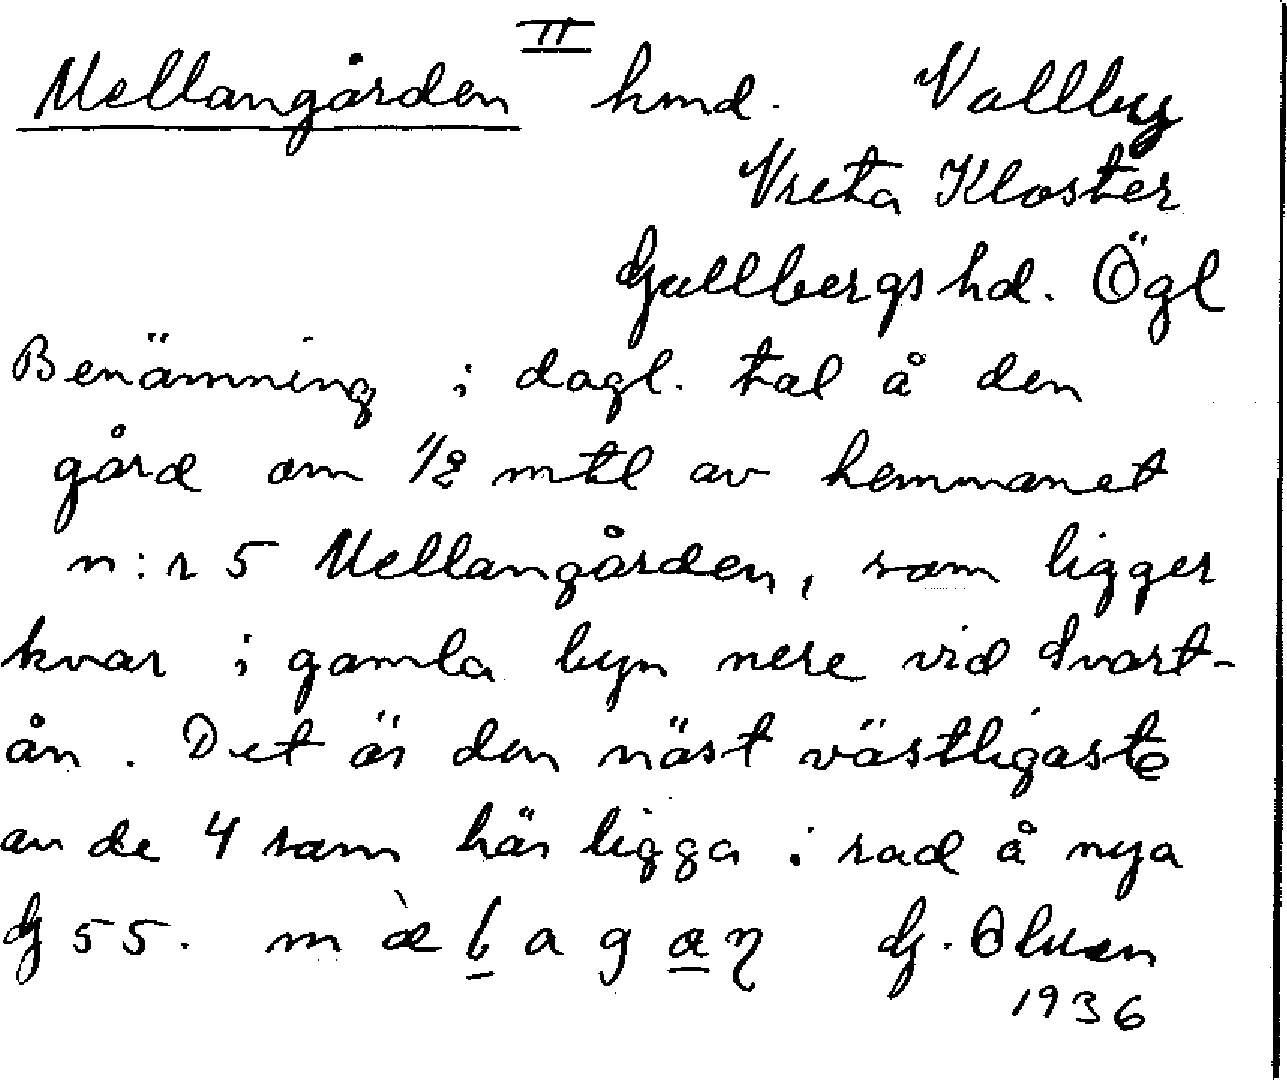 Mellangården II hmd. Vallby
Vreta Kloster
Gullbergs hd. Ögl
Benämning i dagl. tal å den
gård om 1/2 mtl av hemmanet
n:r 5 Mellangården, som ligger
kvar i gamla byn nere vid Svart-
ån. Det är den näst västligaste
av de 4 som här ligga i rad å nya
G 55. G. Olsson
1936